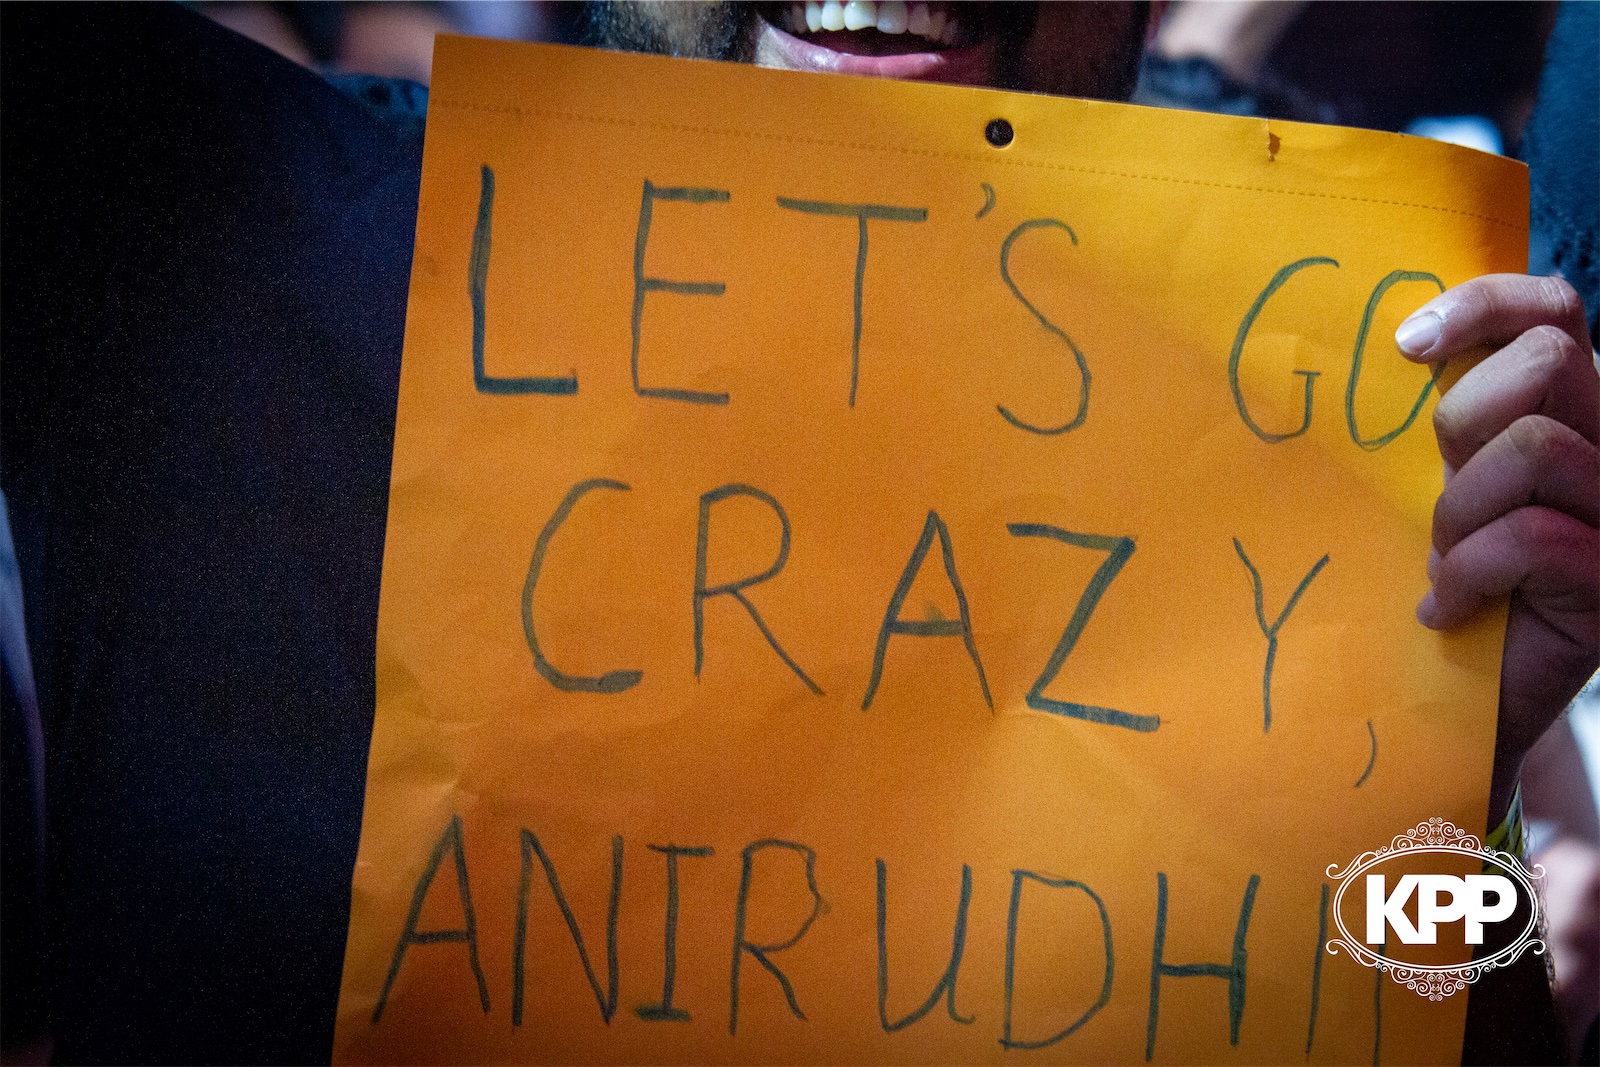 LET'S GO
CRAZY,
ANIRUDH!!
KPP